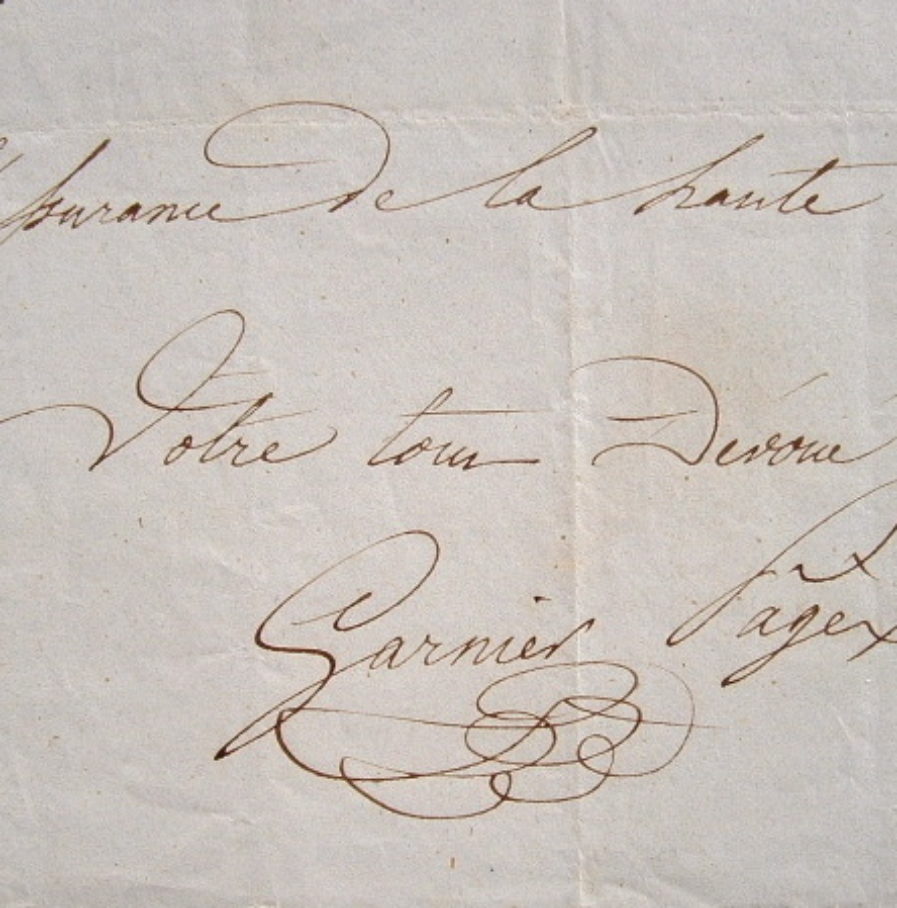 ssurance de la haute
Votre tout Dévoué
Garnier Pagès